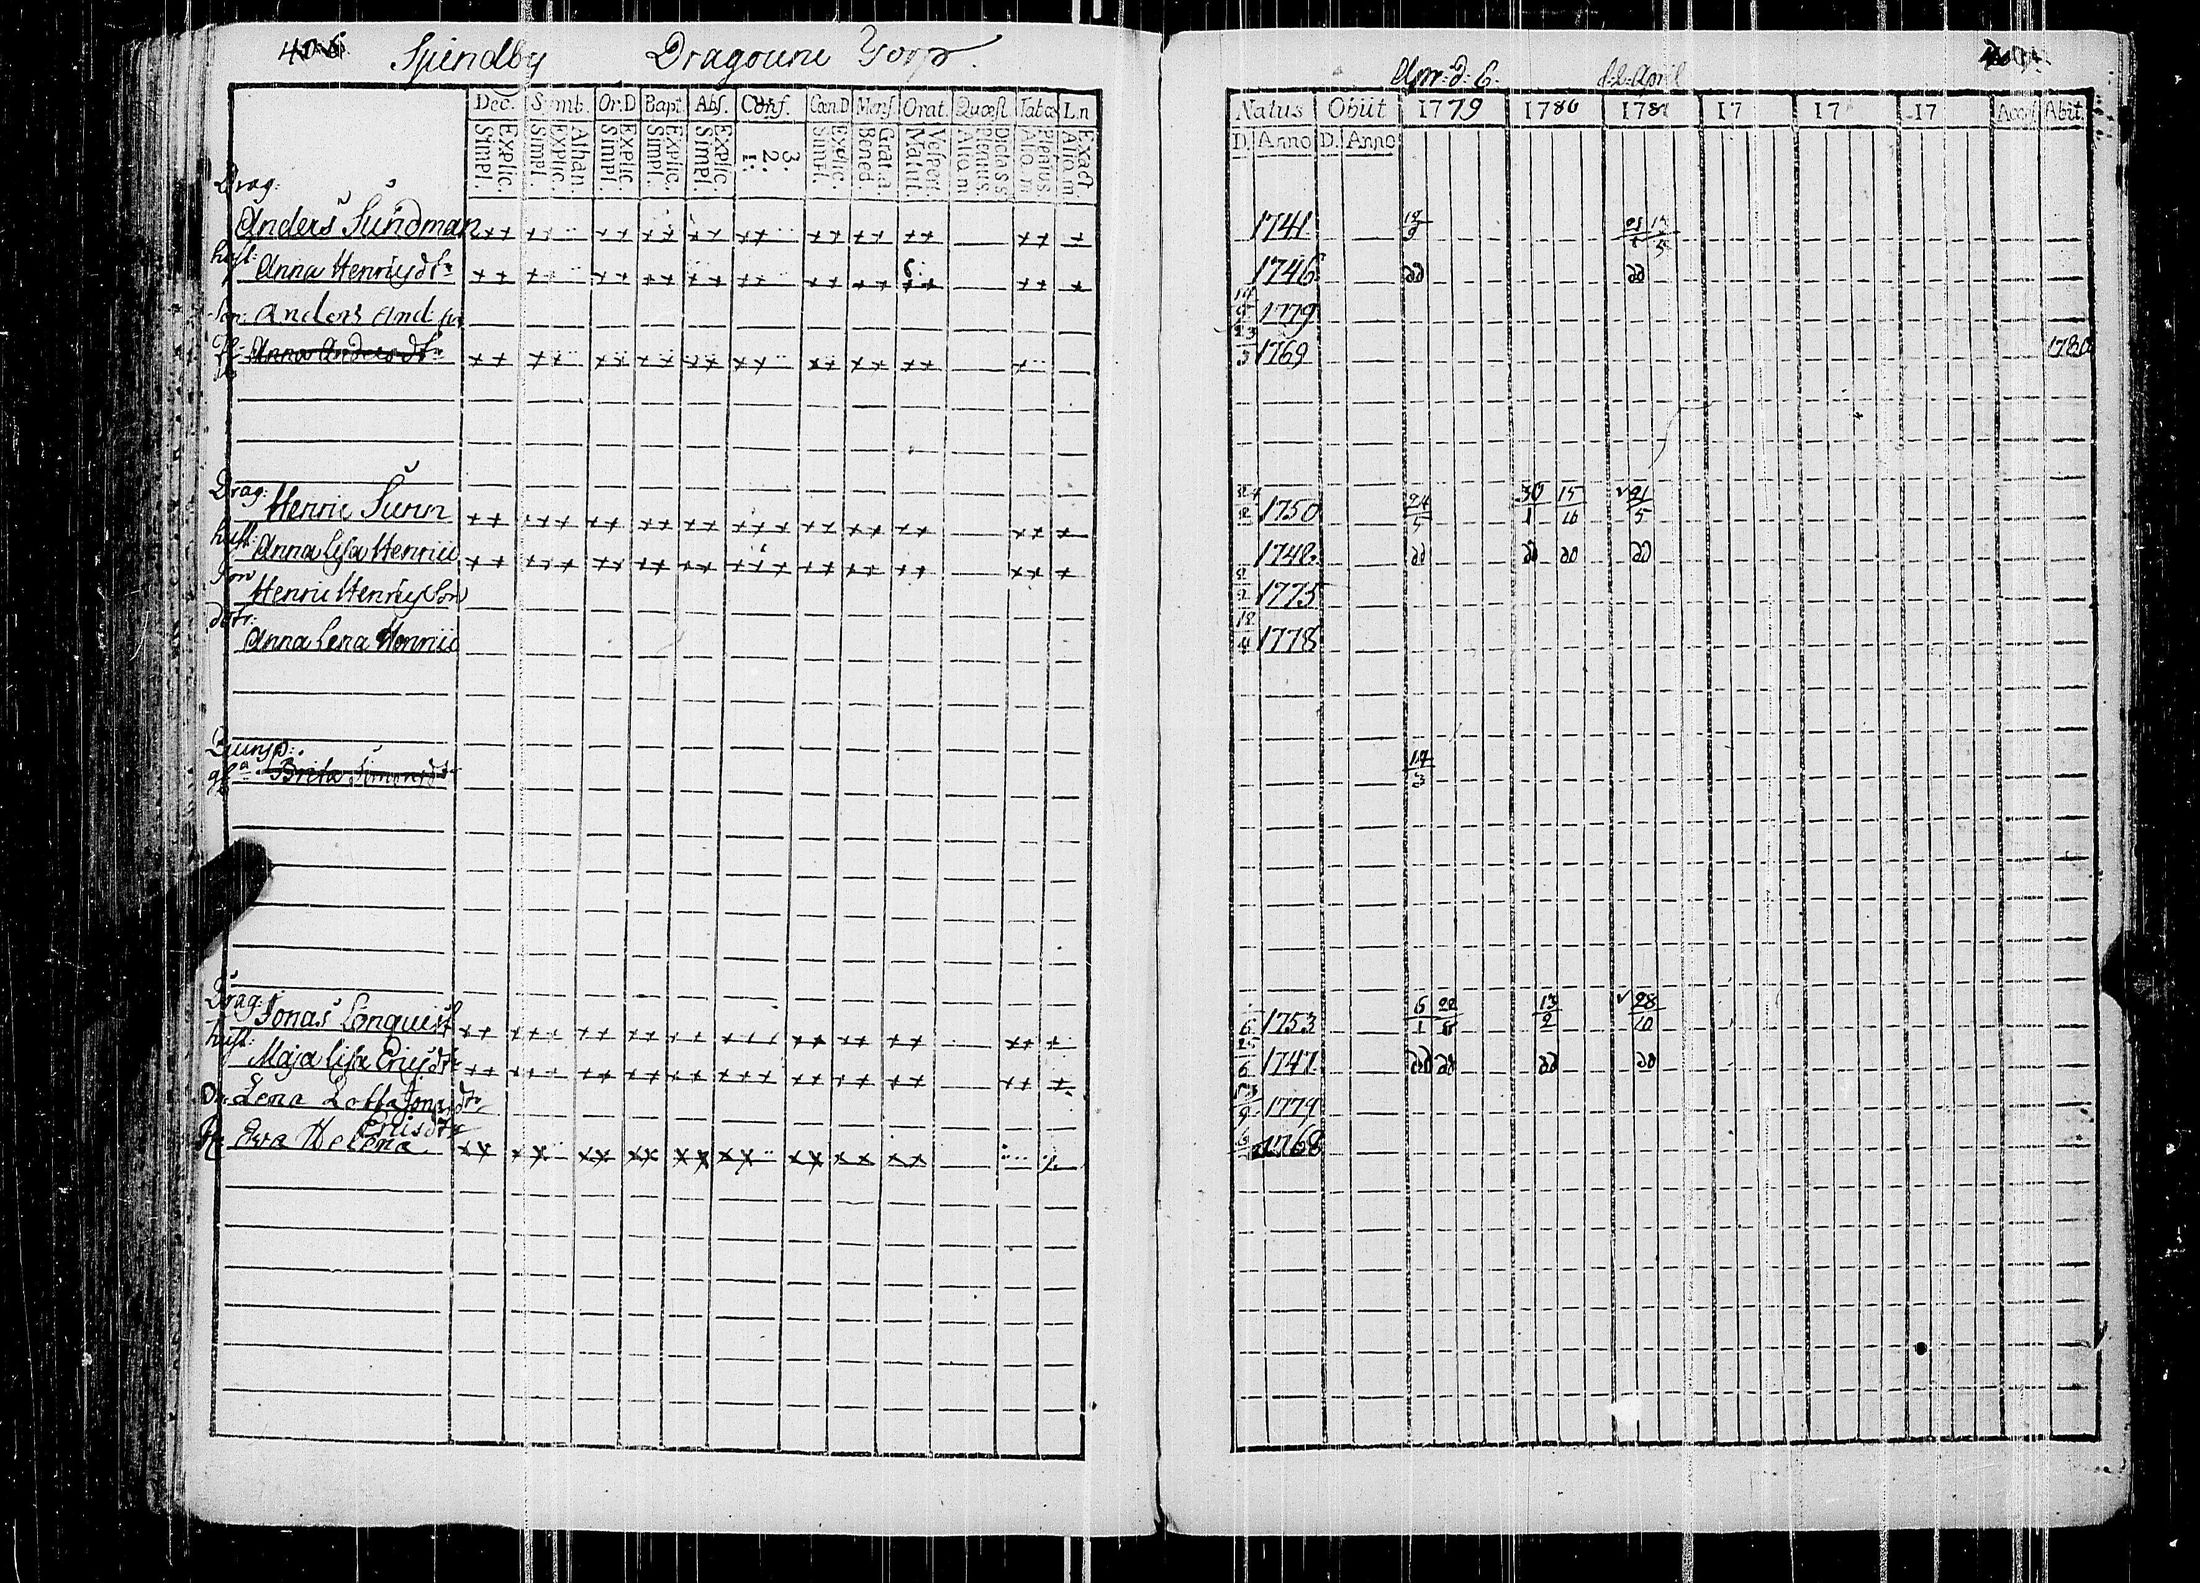 406 Spendby Dragoune Torp.
Dec. Symb. Or.D Bapt. Abs. Conf. Cœn.D Mens. Orat. Quæst. Tabæ L.n
Simpl. Explic. Simpl. Explic. Athan. Simpl. Explic. Simpl. Explic. Simpl. Explic. 1: 2: 3: Simpl. Explic. Bened. Grat.a. Matut. Vesper. Alio m. Plenius. Alio m. Plenius. Alio m. Exact.
Drag:
Anders Sundman
hust: Anna Henricsdtr
Son: Anders And
Anna Andersdtr
Drag: Henric Sunn
hust: Anna Lisa Henrics
Son Henric Henricson
dotr: Anna Lena Henrics
Brita Simonsdtr
Drag: Jonas Lönquist
hust: Maja Lisa Ericsdtr
Dr Lena Lotta Jonsdtr
Ericsdtr
Eva Helena
Apr: d: 6. d. 2. April
Natus Obiit 1779 1780 1781 17 17 17 Acces. Abiit
D. Anno D. Anno
1741
1746 dd dd
1779
1769 1780
1750 24/5 30/1 15/10 21/5
1748 dd dd dd dd
1775
1778
17/3
1753 6/1 13/2 28/10
1747 dd dd dd dd
1779
1768